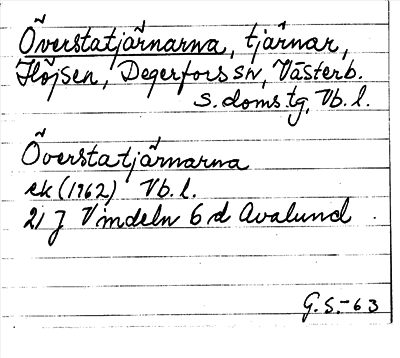 Överstatjärnarna, tjärnar,
Flöjsen, Degerfors sn, Västerb.
s. doms tg, Vb. l.
Överstatjärnarna
ek (1962) Vb. l.
21 J Vindeln 6 d Avalund
G. S. - 63